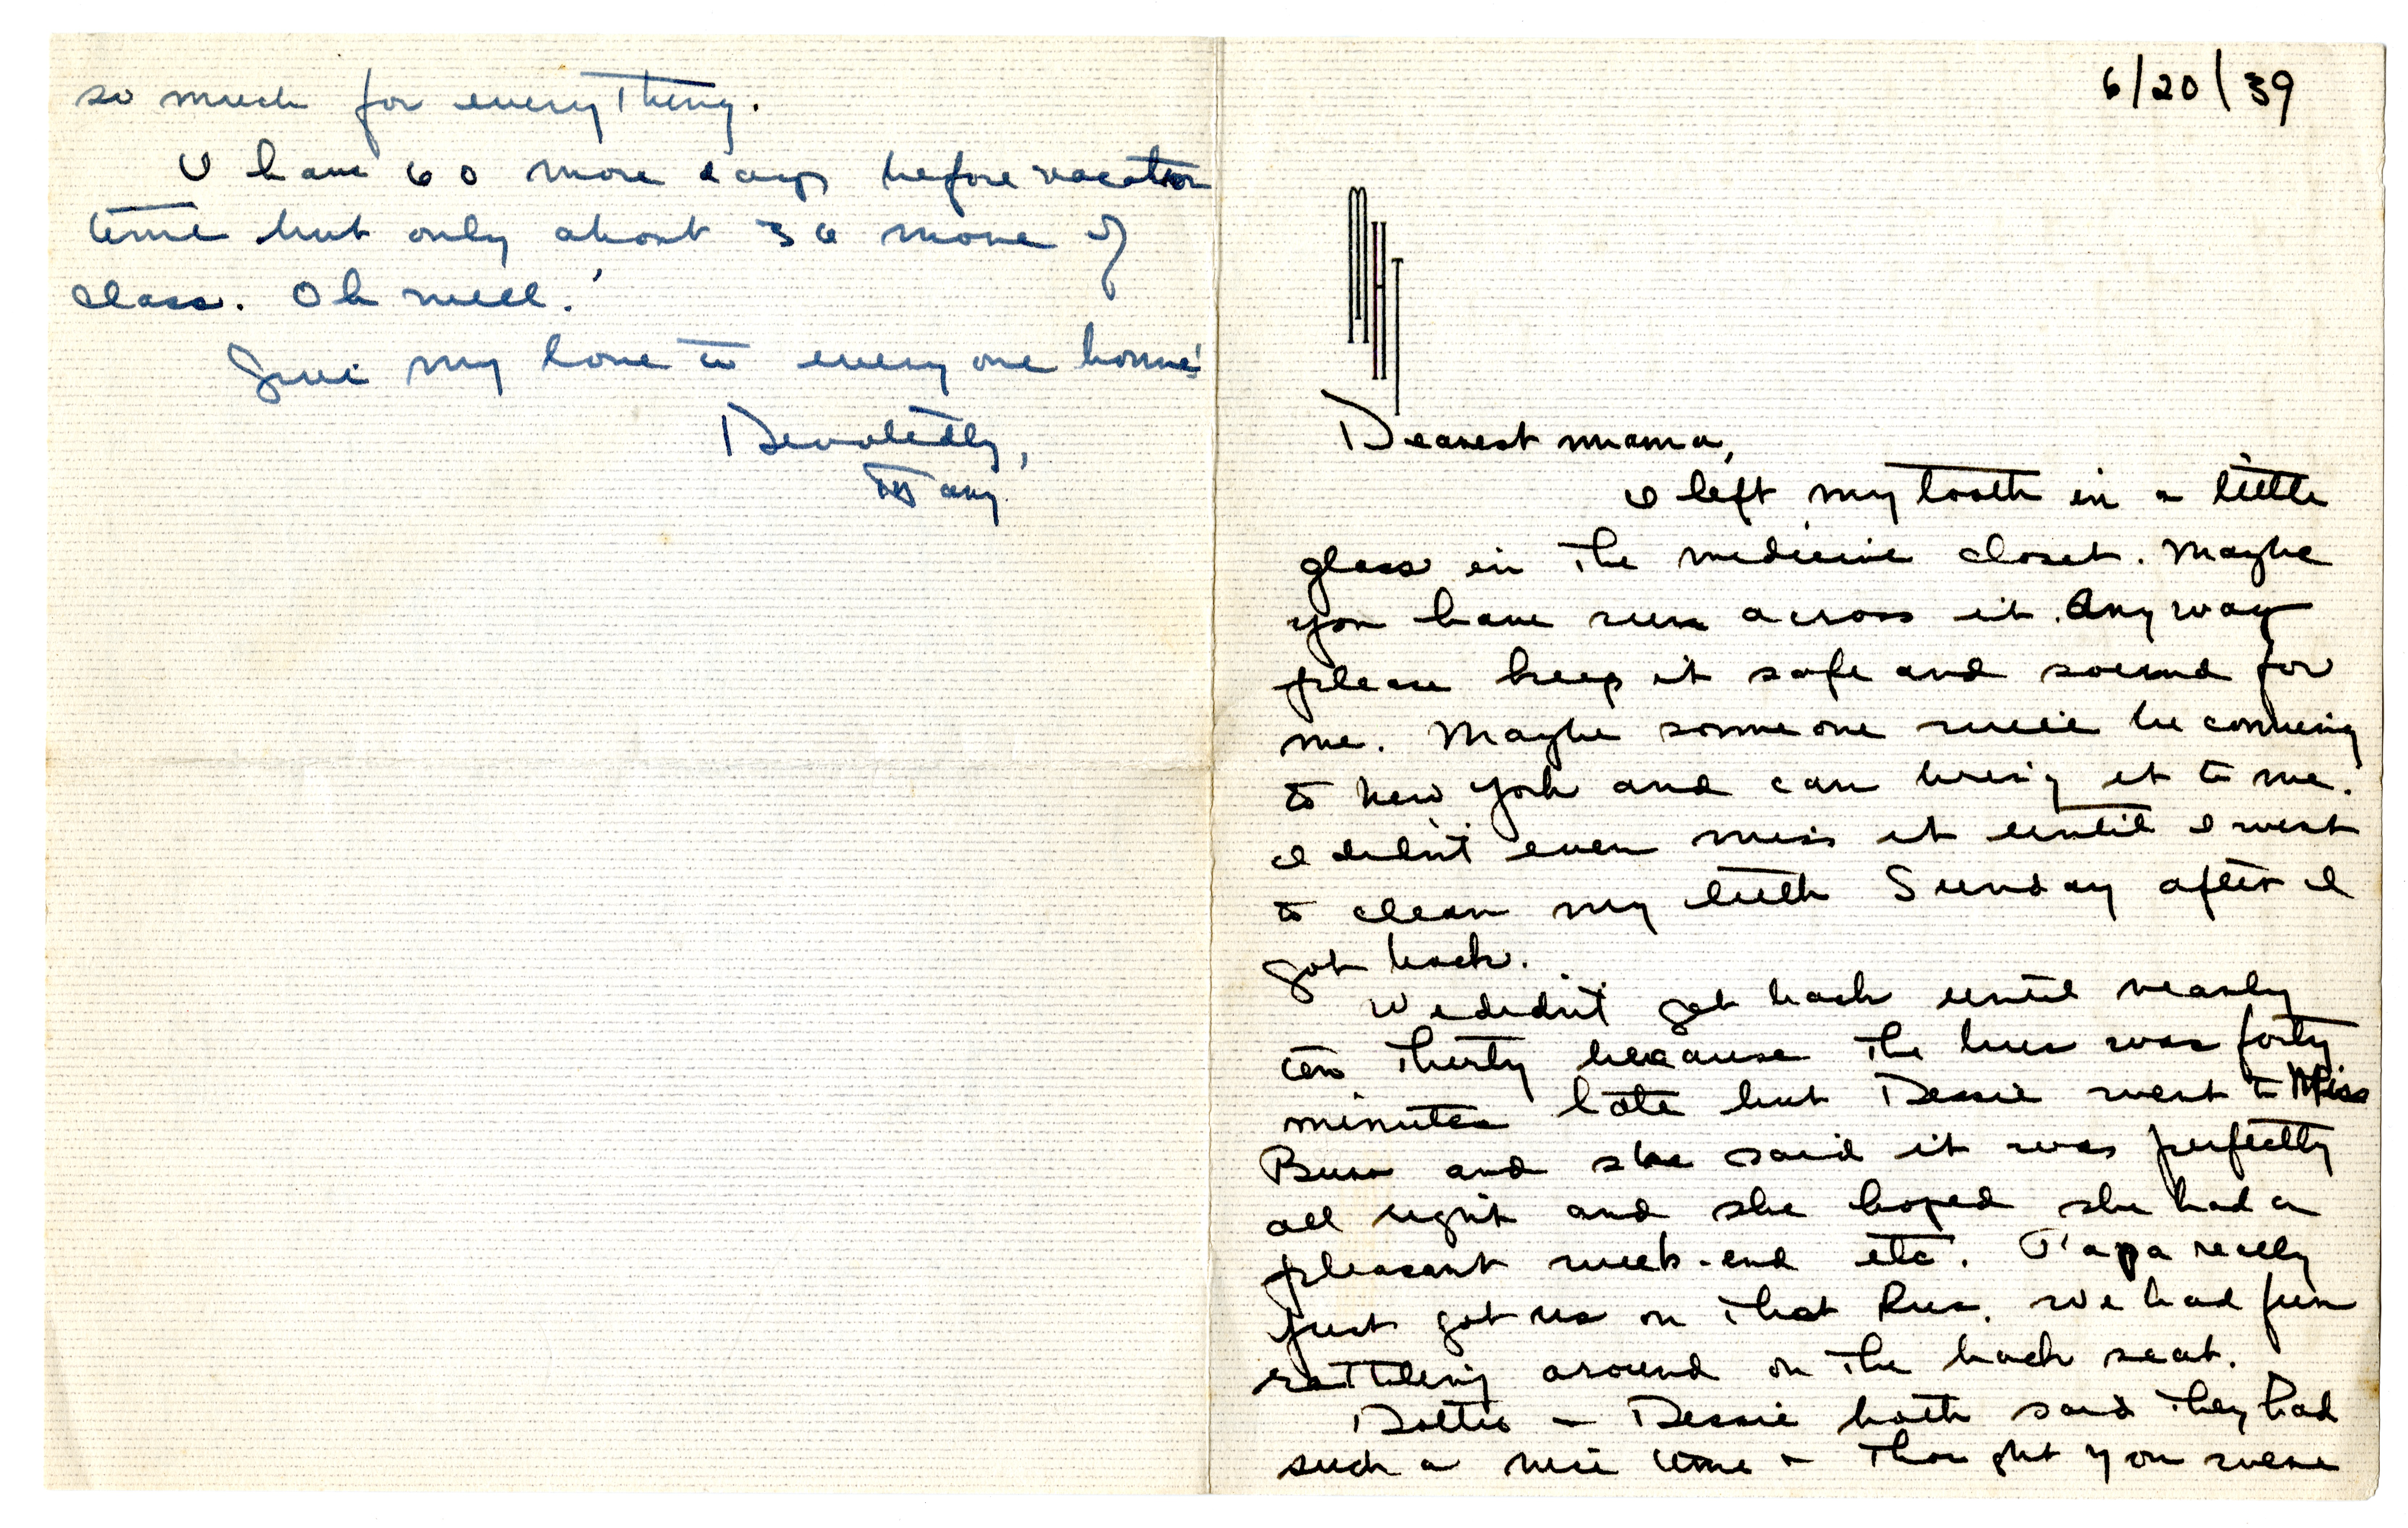 6/20/39
MHJ
Dearest mama,
I left my tooth in a little
glass in the medicine closet. Maybe
you have run across it. Anyway
please keep it safe and sound for
me. Maybe someone will be coming
to New York and can bring it to me.
I didn't even miss it until I went
to clean my teeth Sunday after I
got back.
We didn't get back until nearly
ten thirty because the bus was forty
minutes late but Dessie went to Miss
Burr and she said it was perfectly
all right and she hoped she had a
pleasant week-end etc. Papa really
just got us on that bus. We had fun
rattling around on the back seat.
Dottie + Dessie both said they had
such a nice time + thought you were
so much for everything.
I have 60 more days before vacation
time but only about 36 more of
class. Oh well!
Give my love to everyone home!
Devotedly,
Mary